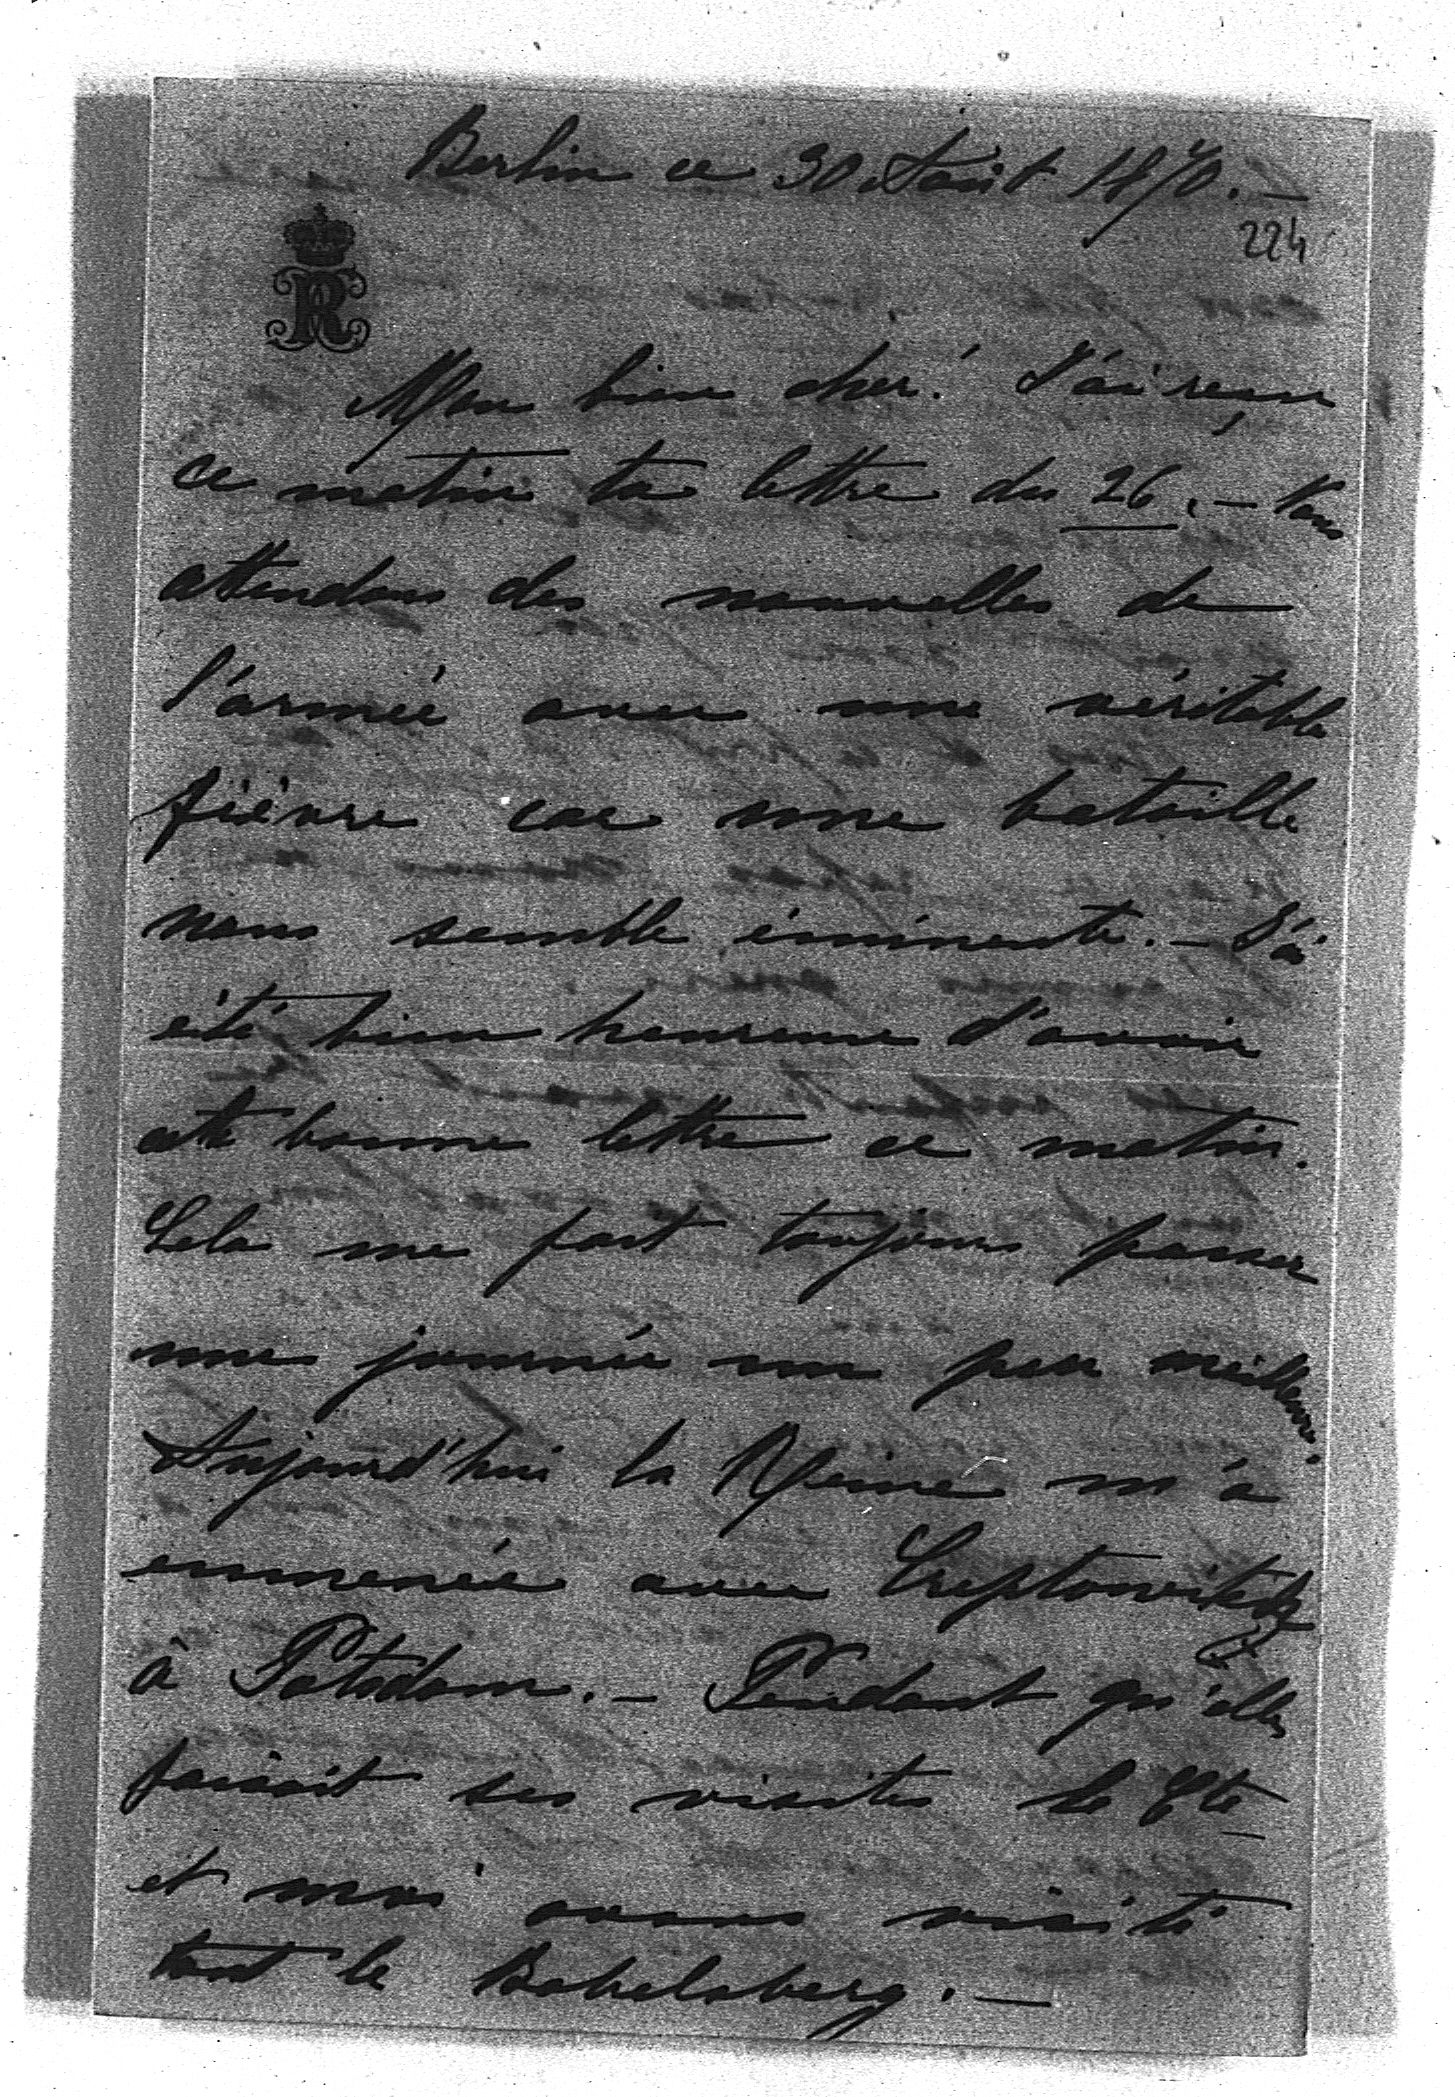 Berlin ce 30 Août 1870. –
224
R
Mon bien cher! J'ai reçu
ce matin ta lettre du 26. – Nous
attendons des nouvelles de
l'armée avec une véritable
fièvre car une bataille
nous semble éminente. – J'ai
été bien heureuse d'avoir
cette bonne lettre ce matin.
Cela me fait toujours passer
une journée un peu meilleure.
Aujourd'hui la Reine m'a
emmenée avec
à Potsdam. – Pendant qu'elle
faisait ses visites le Cte
et moi avons visité
tout le Babelsberg. –